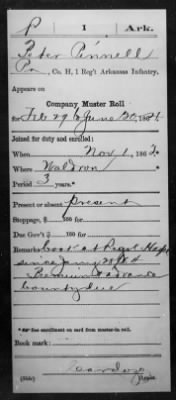 P 1 Ark.
Peter Pinnell
Co. H, 1 Reg't Arkansas Infantry.
Appears on
Company Muster Roll
for Feb 29 to June 30, 1864
Joined for duty and enrolled:
When Nov 1, 1862
Where Waldron
Period 3 years.*
Present or absent Present
Stoppage, $ 100 for
Due Gov't $ 100 for
Remarks: Cook at
since Jany
Premium & advance
bounty due
* See enrollment on card from muster-in roll.
Book mark:
(358) Copyist.